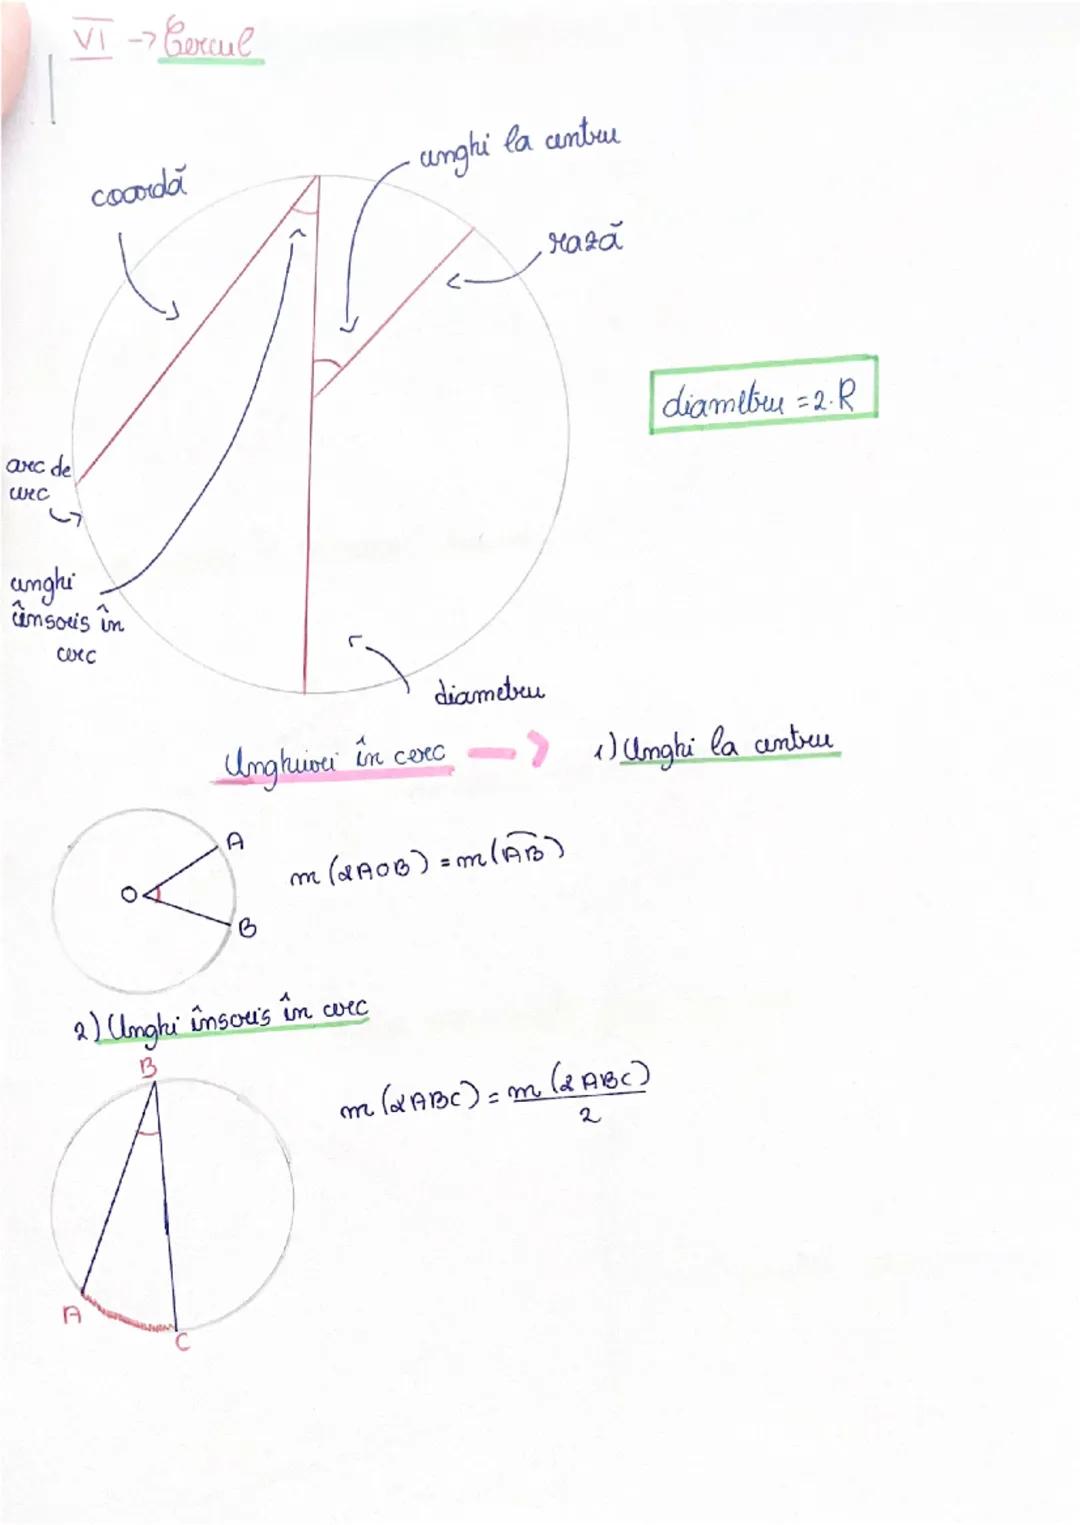 VI → Cercul
unghi la centru
coardă
rază
diametru = 2·R
arc de
cerc
unghi
înscris în
cerc
diametru
Unghiuri în cerc → 1) Unghi la centru
A
m (∢AOB) = m(AB)
O
B
2) Unghi înscris în cerc
B
m (∢ABC) = m (∢ABC)
2
A
C